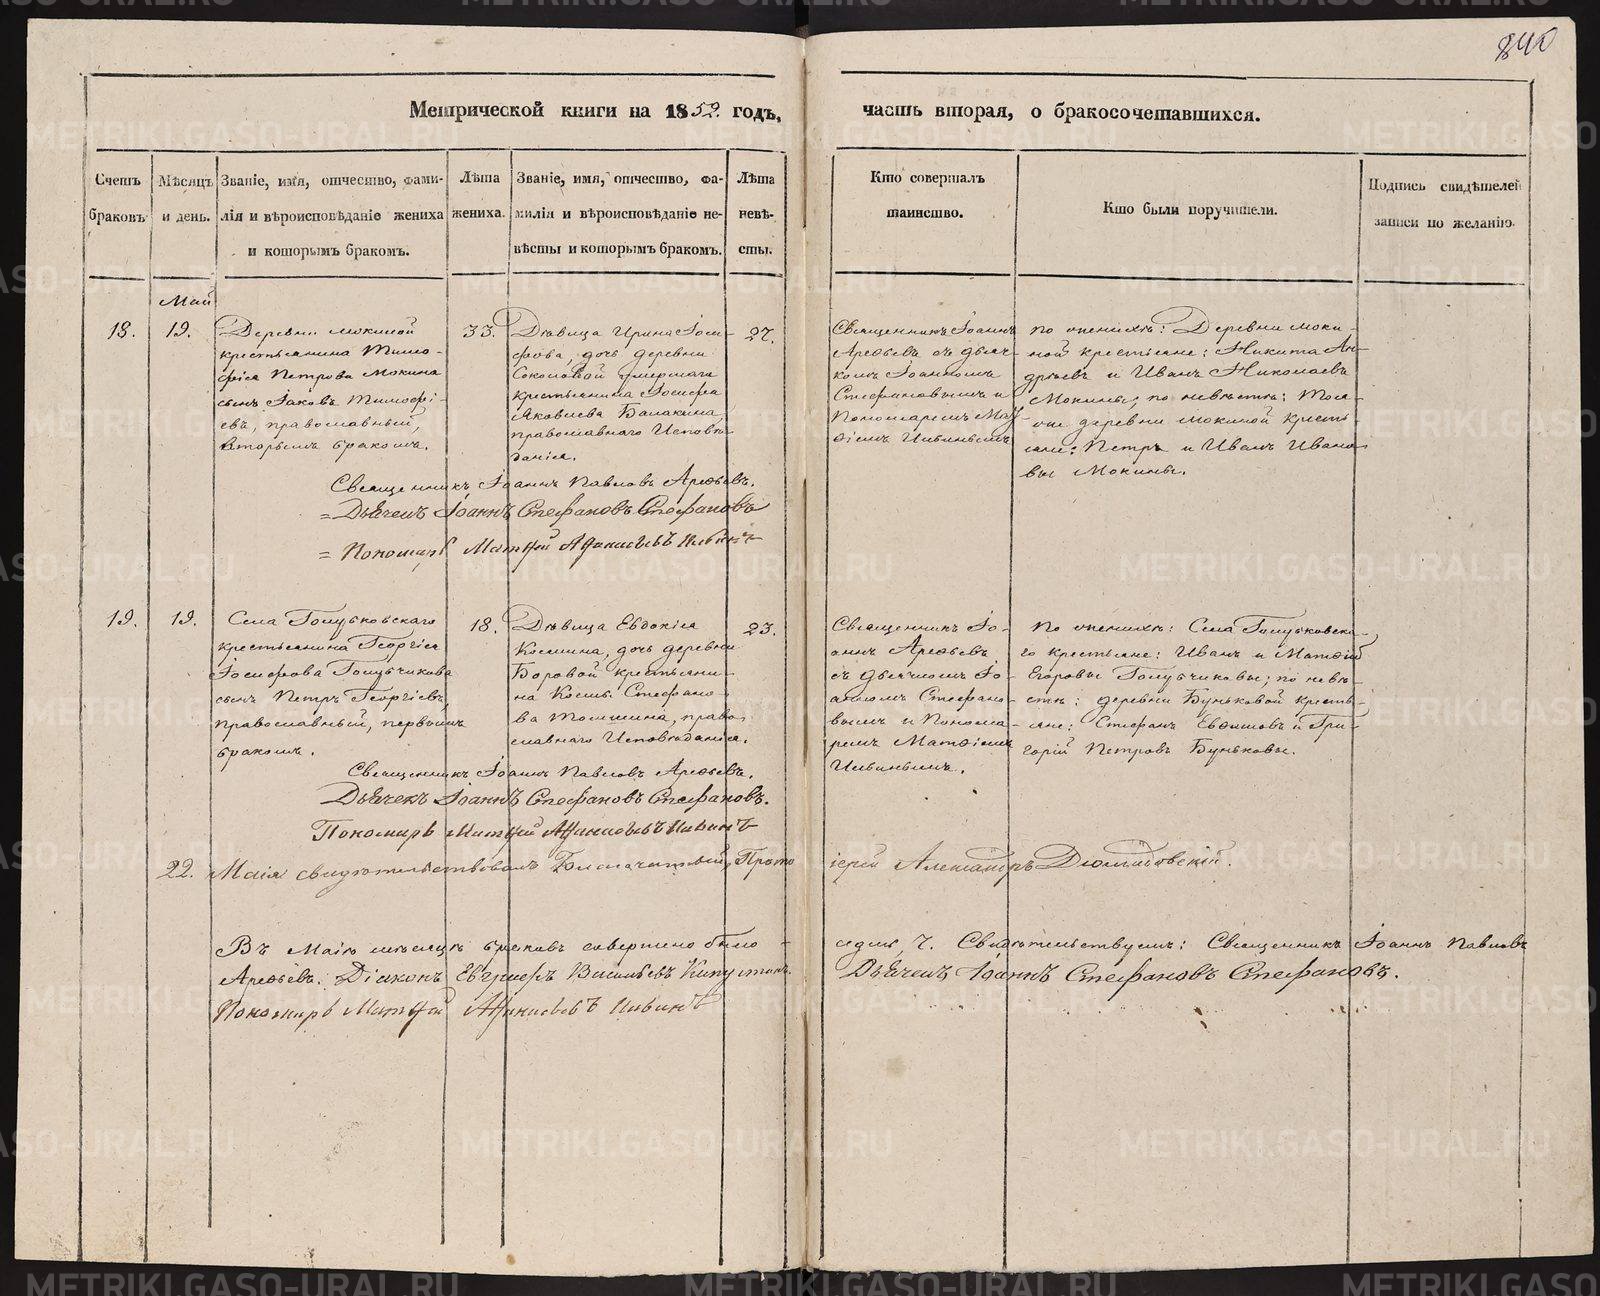 840
Метрической книги на 1852. годъ, часть вторая, о бракосочетавшихся.
Счетъ браковъ
Мѣсяцъ и день.
Званіе, имя, отчество, фами-
лія и вѣроисповѣданіе жениха
и которымъ бракомъ.
Лѣта
жениха.
Званіе, имя, отчество, фа-
милія и вѣроисповѣданіе не-
вѣсты и которымъ бракомъ.
Лѣта
невѣ-
сты.
Кто совершалъ
таинство.
Кто были поручители.
Подпись свидѣтелей
записи по желанію.
Май
18.
19.
Деревни Мокиной
крестьянина Тимо-
фея Петрова Мокина
сынъ Іаковъ Тимофѣ-
евъ, православный,
вторымъ бракомъ.
33.
Дѣвица Ирина Іоси-
фова, дочь деревни
Соколовой умершаго
крестьянина Іосифа
Яковлева Балакина,
православнаго Исповѣ-
данія.
27.
Священникъ Іоаннъ
Арефьевъ съ дьяч-
комъ Іоанномъ
Стефановымъ и
Пономаремъ Мат-
ѳіемъ Ивинымъ
по женихѣ: Деревни Моки-
ной крестьяне: Никита Ан-
дрѣевъ и Иванъ Николаевъ
Мокины; по невѣстѣ: Тоя-
же деревни Мокиной кресть
яне: Петръ и Иванъ Ивано
вы Мокины.
Священникъ Іоаннъ Павловъ Арефьевъ.
= Дьячекъ Іоаннъ Стефановъ Стефановъ
= Пономарь Матѳій Афанасьевъ Ивинъ
19.
19.
Села Голубковскаго
крестьянина Георгія
Іосифова Голубчикова
сынъ Петръ Георгіевъ,
православный, первымъ
бракомъ.
18.
Дѣвица Евдокія
Космина, дочь деревни
Боровой крестьяни-
на Космы Стефано-
ва Томшина, право
славнаго Исповѣданія.
23.
Священникъ Іо-
аннъ Арефьевъ
съ дьячкомъ Іо-
анномъ Стефано-
вымъ и Понома-
ремъ Матѳіемъ
Ивинымъ.
по женихѣ: Села Голубковска-
го крестьяне: Иванъ и Матѳій
Егоровы Голубчиковы; по невѣ-
стѣ: деревни Буньковой кресть-
яне: Стефанъ Евфимовъ и Гри-
горій Петровъ Буньковы.
Священникъ Іоаннъ Павловъ Арефьевъ.
Дьячекъ Іоаннъ Стефановъ Стефановъ.
Пономарь Матѳій Афанасьевъ Ивинъ
22. Маія свидѣтельствовалъ Благочинный, Прото іерей Александръ
Въ Маіѣ мѣсяцѣ браковъ совершено было - седмь 7. Свидѣтельствуемъ: Священникъ Іоаннъ Павловъ
Арефьевъ. Діаконъ Евграфъ Васильевъ Капустинъ. Дьячекъ Іоаннъ Стефановъ Стефановъ.
Пономарь Матѳій Афанасьевъ Ивинъ
METRIKI.GASO-URAL.RU